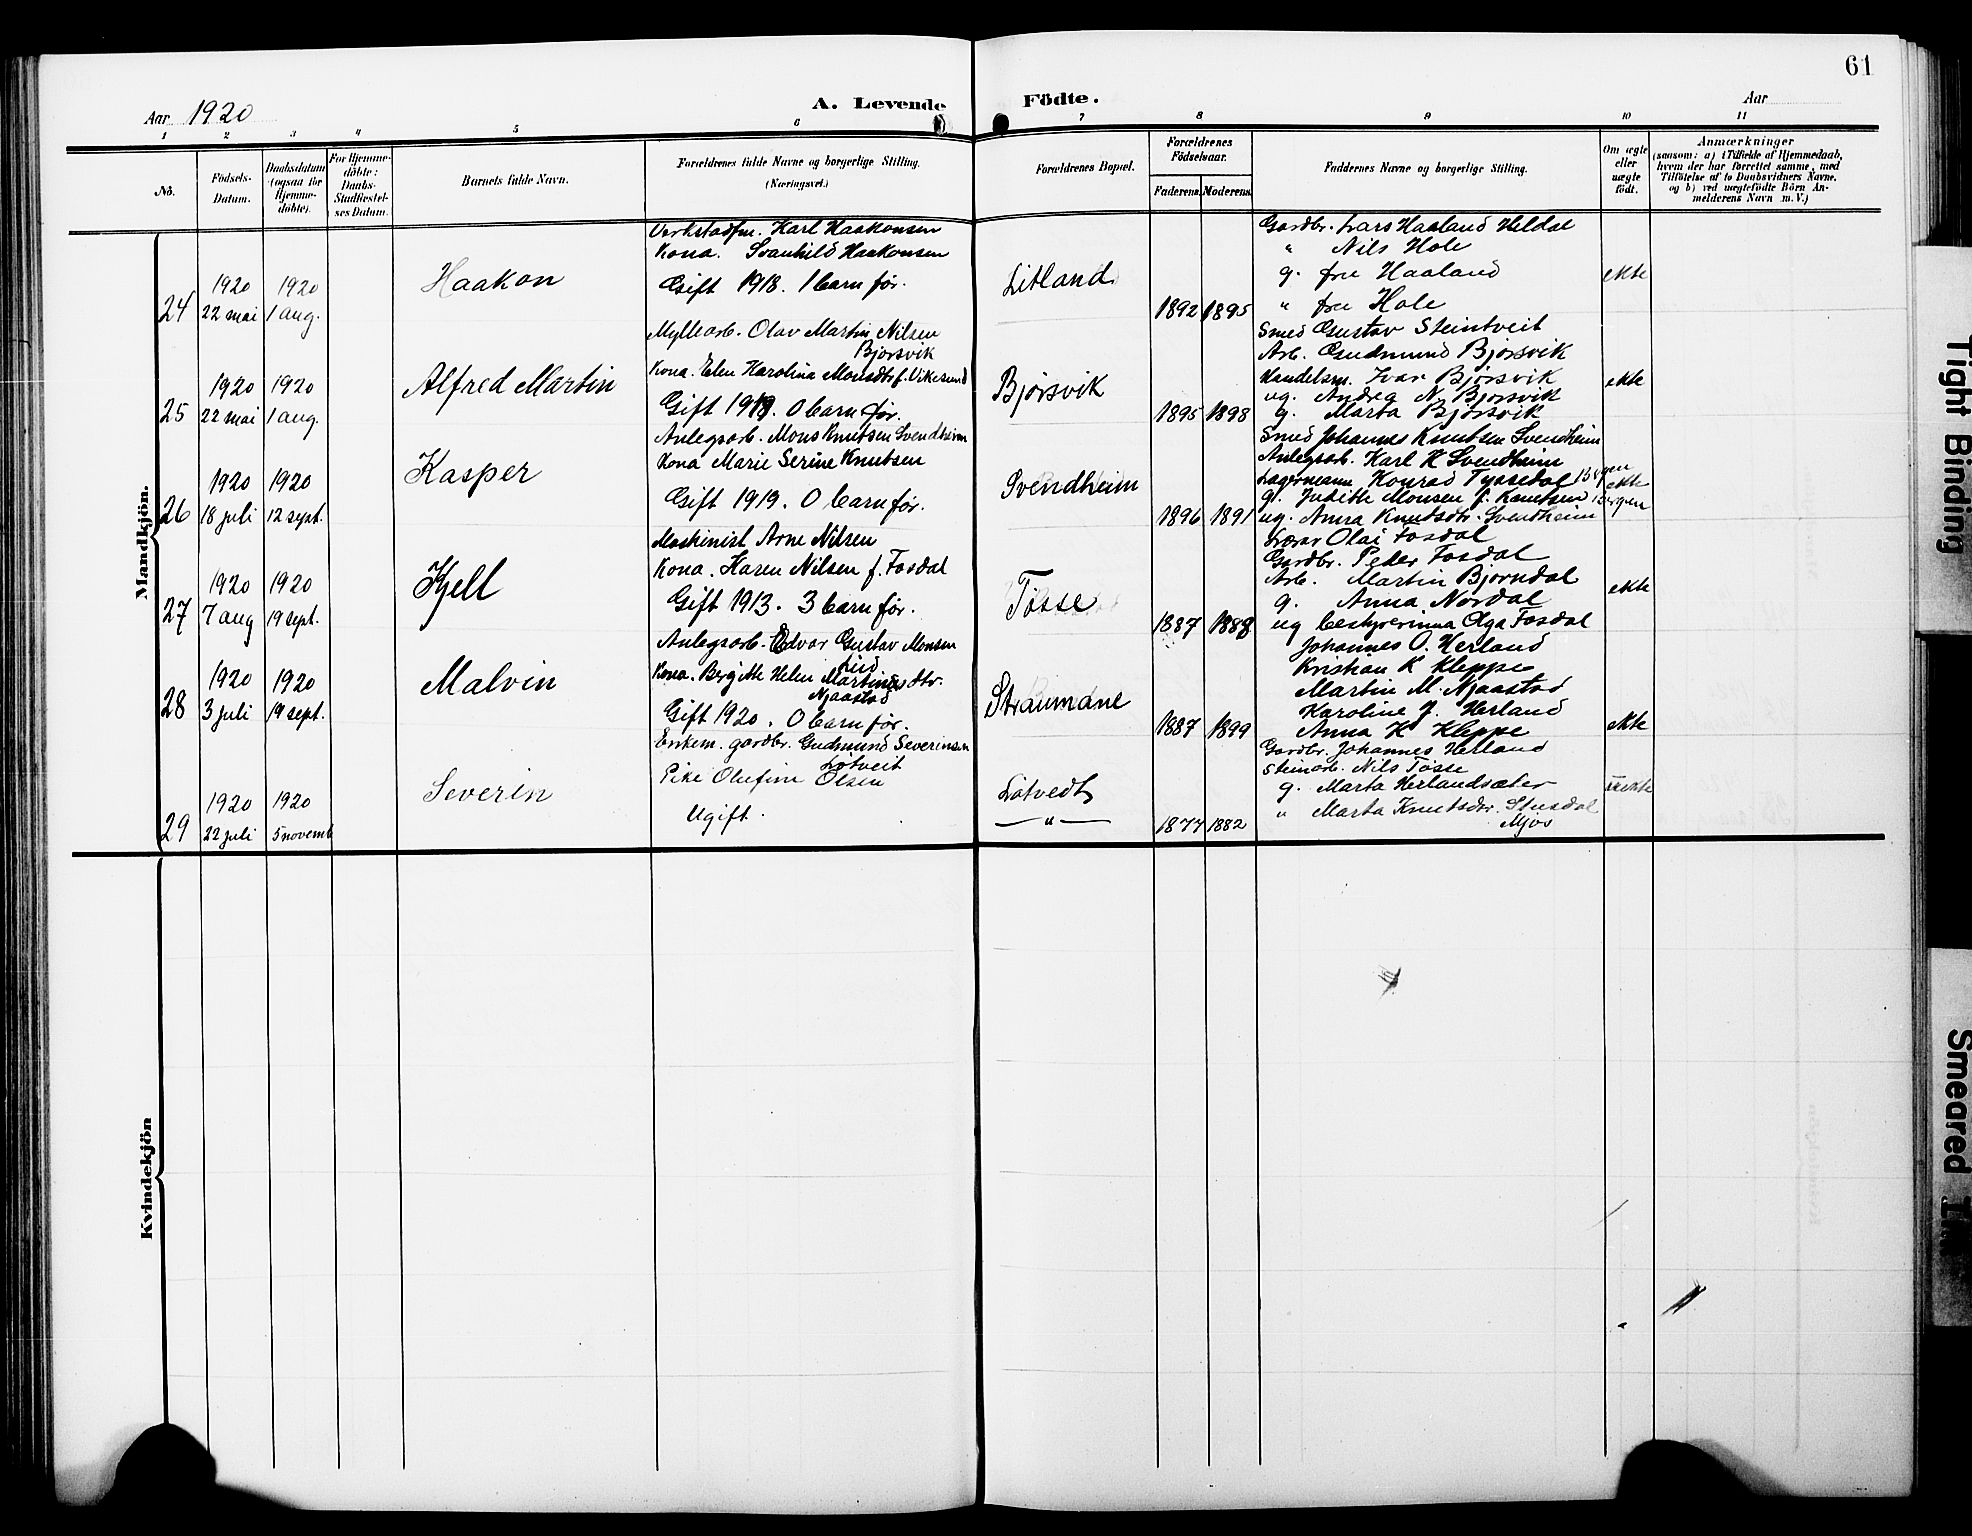 61
Aar 1920
A. Levende Födte.
Aar
1 2 3 4 5 6 7 8 9 10 11
No.
Födsels-Datum.
Daabsdatum (ogsaa for Hjemme-döbte).
For Hjemme-döbte: Daabs-Stadfæstel-ses Datum.
Barnets fulde Navn.
Forældrenes fulde Navne og borgerlige Stilling.
(Næringsvei.)
Forældrenes Bopæl.
Forældrenes Födselsaar.
Faderens. Moderens.
Faddernes Navne og borgerlige Stilling.
Om ægte eller uægte födt.
Anmærkninger
(saasom: a) i Tilfælde af Hjemmedaab,
hvem der har forrettet samme, med
Tilföielse af to Daabsvidners Navne,
og b) ved uægtefödte Börn An-
melderens Navn m. V.)
Mandkjön.
24
1920
22 mai
1920
1 aug.
Haakon
Verkstadfm. Karl Haakonsen
Kona. Svanhild Haakonsen
Gift 1918. 1 barn før.
Litland
1892 1895
Gardbr. Lars Haaland Heldal
" Nils Hole
g. fru Haaland
" fru Hole
Smed Gustav Steintveit
ekte
25
1920
22 mai
1920
1 aug.
Alfred Martin
Myllearb. Olav Martin Nilsen
Bjørsvik
Kona. Elen Karolina Monsdtr f. Vikesund
Gift 1919. 0 barn før.
Bjørsvik
1895 1898
Arb. Gudmund Bjørsvik
Handelsm. Ivar Bjørsvik
ug. Andrea N. Bjørsvik
g. Marta Bjørsvik
ekte
26
1920
18 juli
1920
12 sept.
Kasper
Anlegsarb. Mons Knutsen Svendheim
Kona Marie Serine Knutsen
Gift 1919. 0 barn før.
Svendheim
1896 1891
Smed Johannes Knutsen Svendheim
Anlegsarb. Karl K Svendheim
Lagermann Konrad Tyssedal Bergen
g. Judith Monsen f. Knutsen Bergen
ug. Anna Knudsdtr. Svendheim
ekte
27
1920
7 aug
1920
19 sept.
Kjell
Maskinist Arne Nilsen
Kona. Karen Nilsen f. Fosdal
Gift 1913. 3 barn før.
Tøsse
1887 1888
Lærar Olai Fosdal
Gardbr. Peder Fosdal
Arb. Martin Bjørndal
g. Anna Nordal
ug bestyrerinna Olga Fosdal
ekte
28
1920
3 juli
1920
19 sept.
Malvin
Anlegsarb. Edvar Gustav Monsen
Lid
Kona. Bergitte Helene Martinusdtr.
Njaastad
Gift 1920. 0 barn før.
Straumane
1887 1899
Johannes O. Herland
Kristian K Kleppe
Martin M. Njaastad
Karoline J. Herland
Anna K Kleppe
ekte
29
1920
22 juli
1920
5 novemb
Severin
Enkem. gardbr. Gudmund Severinsen
Lotveit
Pike Olufine Olsen
Ugift.
Lotvedt
— " —
1877 1882
Gardbr. Johannes Herland
Steinarb. Nils Tøsse
g. Marta Herlandsæter
" Marta Knutsdtr. Stusdal
Mjøs
uekte
Kvindekjön
Tight Binding
Smeared